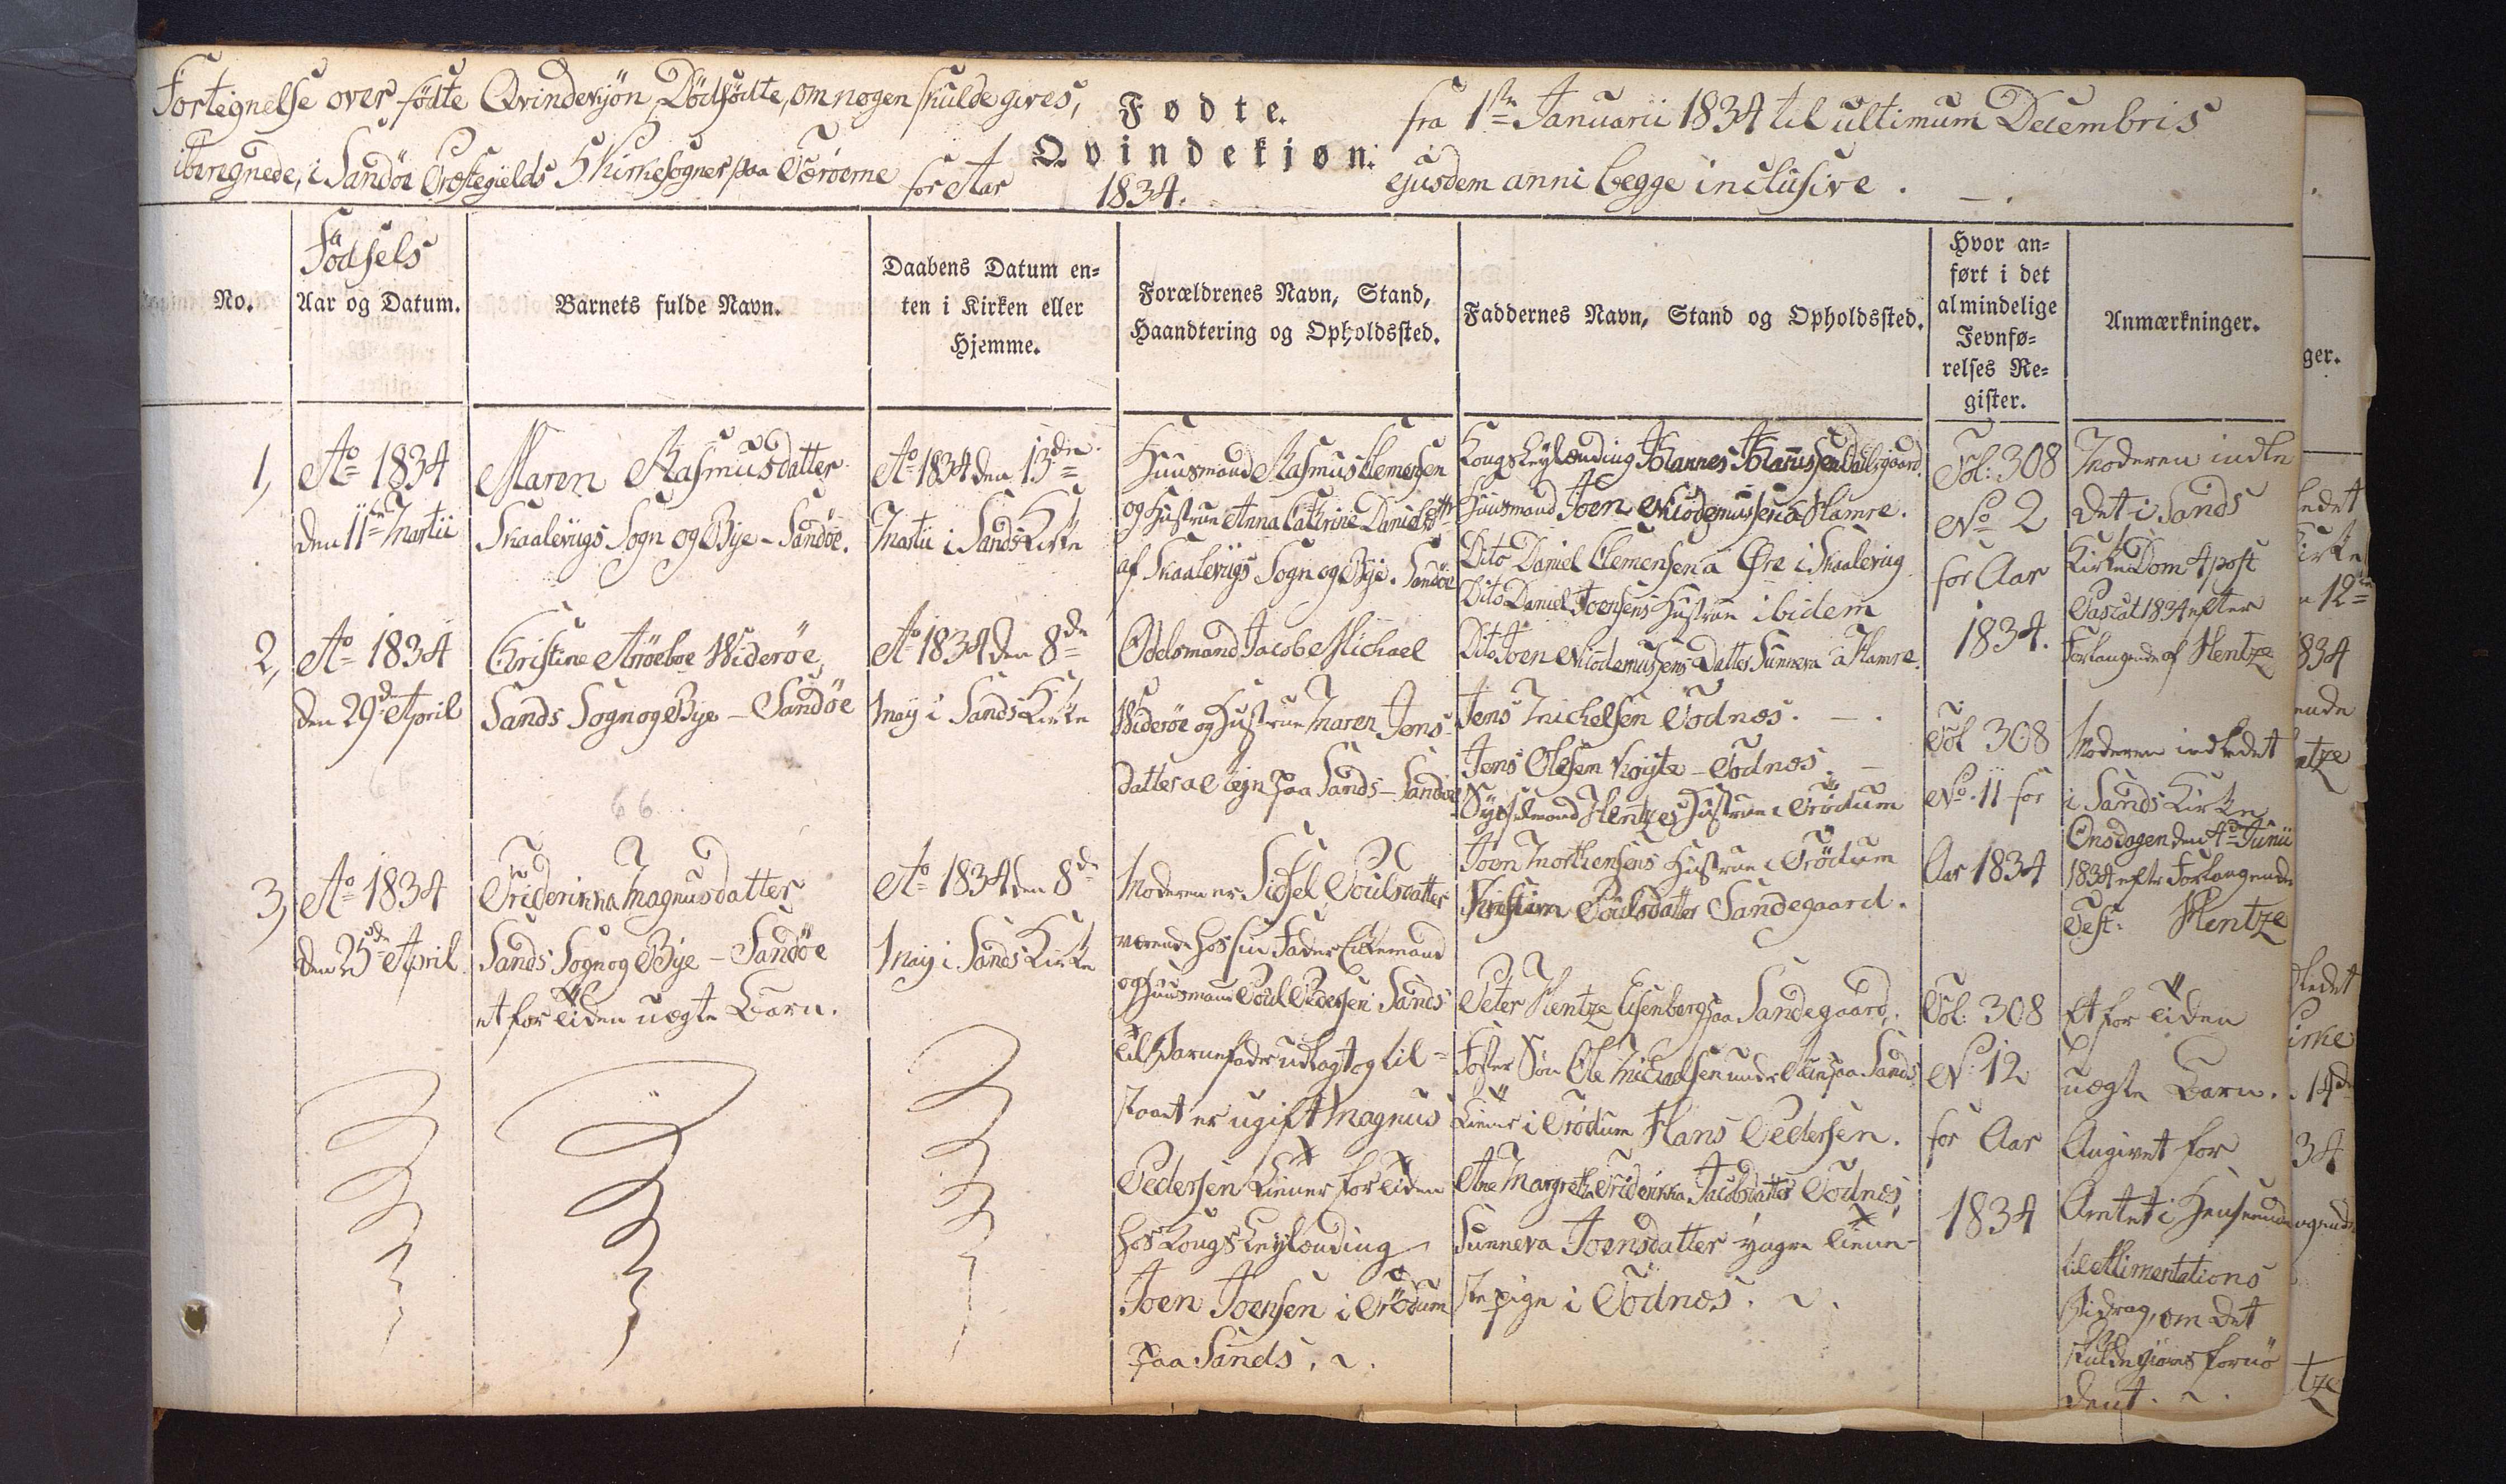 Fortegnelse over fødte Qvindekjøn Dødfødte, om nogen skulde gives,
iberegnede, i Sandøe Præstegields 5 Kirkesogner paa Færöerne
Fødte.
Qvindekjøn.
for Aar 1834.
fra 1ste Januarii 1834 til ultimum Decembris
ejusdem anni begge inclusive.
No.
Födsels
Aar og Datum.
Barnets fulde Navn.
Daabens Datum en-
ten i Kirken eller
Hjemme.
Forældrenes Navn, Stand,
Haandtering og Opholdssted.
Faddernes Navn, Stand og Opholdssted.
Hvor an-
ført i det
almindelige
Jevnfø-
relses Re-
gister.
Anmærkninger.
1,
Ao 1834
den 11te Martii
Maren Rasmusdatter
Skaalevigs Sogn og Bye - Sandöe.
Ao 1834 den 13de
Martii i Sands Kirke
Huusmand Rasmus Clemensen
og Hustrue Anna Cathrine Danielsdttr
af Skaalevigs Sogn og Bye. Sandöe
Kongsleylænding Johannes Johannissen Dalsgaard.
Huusmand Joen Nicodemussen a Hamre.
Dito Daniel Clemensen a Øre i Skaalevig
Dito Daniel Joensens Hustrue ibidem
Dito Joen Nicodemussens Datter Sunneva a Hamre.
Fol: 308
No 2
for Aar
1834.
Moderen indle
det i Sands
Kirke Dom 4 post
Pascat 1834 efter
Forlangende af Hentze
2,
Ao 1834
den 29de April
Christine Arröeboe Widerøe,
Sands Sogn og Bye - Sandöe
Ao 1834 den 8de
Maij i Sands Kirke
Odelsmand Jacob Michael
Widerøe og Hustrue Maren Jens-
datter a Tejn paa Sands - Sandöe
Jens Michelsen Todnes.
Jens Olesen Køyte - Todnes
Sysselmand Hentzes Hustrue i Trödum
Joen Morthensens Hustrue i Trödum
Poulsdatter Sandegaard.
Fol 308
No. 11 for
Aar 1834
Moderen indledet
i Sands Kirke
Onsdagen den 4de Junii
1834 efter Forlangende
Test. Hentze
3,
Ao 1834
den 25de April
Friderikka Magnusdatter
Sands Sogn og Bye - Sandöe
et for Tiden uægte Barn.
Ao 1834 den 8de
Maij i Sands Kirke
Moderen er Sidsel Poulsdatter
værende hos sin Fader Enkemand
og Huusmand Poul Pedersen i Sands
til Barnefader udlagt og til-
staaet er ugift Magnus
Pedersen tiener for Tiden
hos Kongs Leylænding
Joen Joensen i Trödum
paa Sands.
Peter Hentze Eisenberg paa Sandegaard,
Foster Søn Ole Michaelsen under paa Sands
tiener i Trödum Hans Pedersen.
Ane Margretha Friderikka Jacobsdatter Todnes,
Sunneva Joensdatter yngre tiene-
ste pige i Todnes.
Fol: 308
No: 12
for Aar
1834
Et for Tiden
uægte Barn.
Angivet for
Amtet i Henseende
til Alimentations
Bidrag, om det
skulde giøres fornö
dent.
ger.
ledet
Kirke
12te
834
ende
ntze
ledet
irke
14de
34
ngende
tze